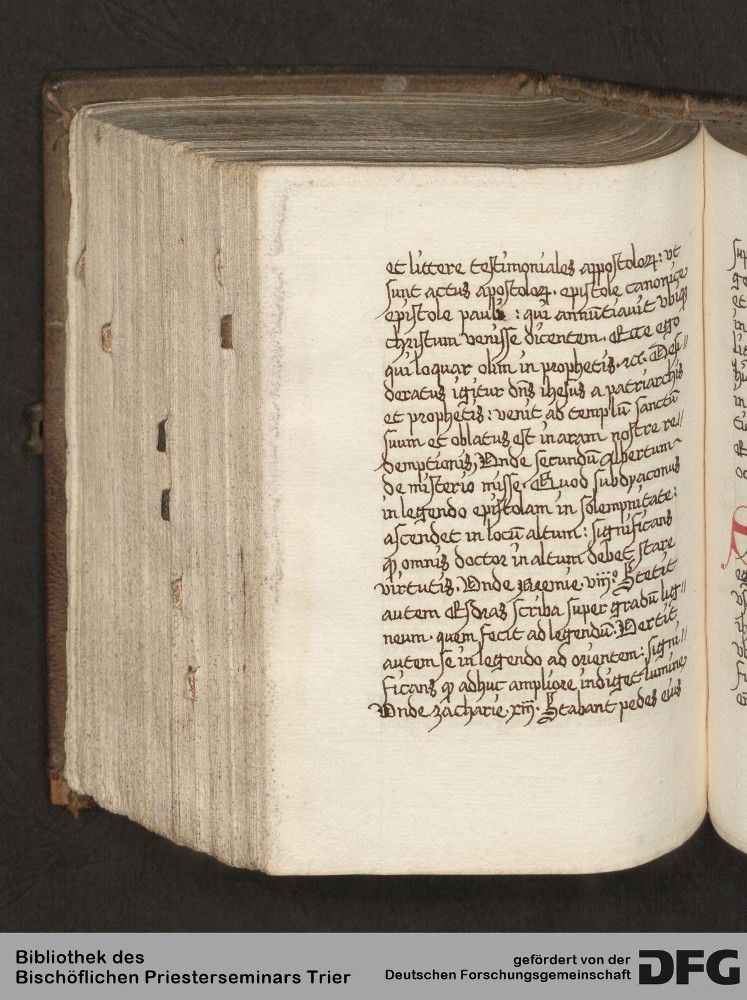 et littere testimoniales appostolorꝝ: vt
sunt actus apostolorꝝ. epistole canonice
epistole pauli : qui annūtiauit vbiqꝫ
christum venisse dicentem. Ecce ego
qui loquar olim in prophetis. ⁊c. Desi//
deratus igitur dn̄s ihesus a patriarchis
et prophetis: venit ad templū sanctū
suum et oblatus est in aram nostre re//
demptionis, Vnde secundū Albertum
de misterio misse. Quod subdyaconus
in legendo epistolam in solempnitate:
ascendet in locū altum: significans
ꝙ omnis doctor in altum debet stare
virtutis. Vnde Neemie. viijº. Stetit
autem Esdras scriba super gradū lig//
neum. quem fecit ad legendū. Vertit
autem se in legendo ad orientem: signi//
ficans ꝙ adhuc ampliore indiget lumine
Vnde zacharie. xiiij. Stabant pedes eius
Bibliothek des
Bischöflichen Priesterseminars Trier
gefördert von der
Deutschen Forschungsgemeinschaft
DFG